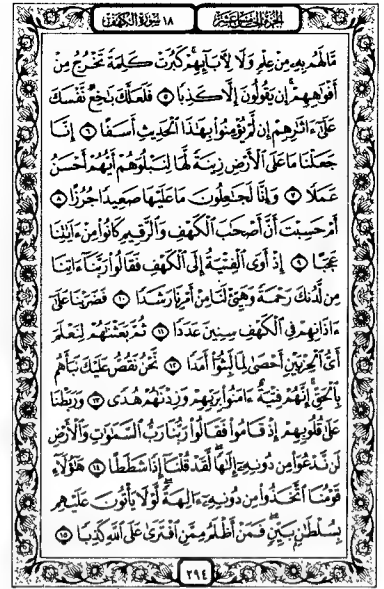 الجزء الخامس عشر ١٨ سورة الكهف
مَّا لَهُم بِهِۦ مِنْ عِلْمٍ وَلَا لِأَبَآئِهِمْ ۚ كَبُرَتْ كَلِمَةً تَخْرُجُ مِنْ
أَفْوَٰهِهِمْ ۚ إِن يَقُولُونَ إِلَّا كَذِبًا ٥ فَلَعَلَّكَ بَٰخِعٌ نَّفْسَكَ
عَلَىٰٓ ءَاثَٰرِهِمْ إِن لَّمْ يُؤْمِنُوا۟ بِهَٰذَا ٱلْحَدِيثِ أَسَفًا ٦ إِنَّا
جَعَلْنَا مَا عَلَى ٱلْأَرْضِ زِينَةً لَّهَا لِنَبْلُوَهُمْ أَيُّهُمْ أَحْسَنُ
عَمَلًا ٧ وَإِنَّا لَجَٰعِلُونَ مَا عَلَيْهَا صَعِيدًا جُرُزًا ٨
أَمْ حَسِبْتَ أَنَّ أَصْحَٰبَ ٱلْكَهْفِ وَٱلرَّقِيمِ كَانُوا۟ مِنْ ءَايَٰتِنَا
عَجَبًا ٩ إِذْ أَوَى ٱلْفِتْيَةُ إِلَى ٱلْكَهْفِ فَقَالُوا۟ رَبَّنَآ ءَاتِنَا
مِن لَّدُنكَ رَحْمَةً وَهَيِّئْ لَنَا مِنْ أَمْرِنَا رَشَدًا ١٠ فَضَرَبْنَا عَلَىٰٓ
ءَاذَانِهِمْ فِى ٱلْكَهْفِ سِنِينَ عَدَدًا ١١ ثُمَّ بَعَثْنَٰهُمْ لِنَعْلَمَ
أَىُّ ٱلْحِزْبَيْنِ أَحْصَىٰ لِمَا لَبِثُوٓا۟ أَمَدًا ١٢ نَّحْنُ نَقُصُّ عَلَيْكَ نَبَأَهُم
بِٱلْحَقِّ ۚ إِنَّهُمْ فِتْيَةٌ ءَامَنُوا۟ بِرَبِّهِمْ وَزِدْنَٰهُمْ هُدًى ١٣ وَرَبَطْنَا
عَلَىٰ قُلُوبِهِمْ إِذْ قَامُوا۟ فَقَالُوا۟ رَبُّنَا رَبُّ ٱلسَّمَٰوَٰتِ وَٱلْأَرْضِ
لَن نَّدْعُوَا۟ مِن دُونِهِۦٓ إِلَٰهًا ۖ لَّقَدْ قُلْنَآ إِذًا شَطَطًا ١٤ هَٰٓؤُلَآءِ
قَوْمُنَا ٱتَّخَذُوا۟ مِن دُونِهِۦٓ ءَالِهَةً ۖ لَّوْلَا يَأْتُونَ عَلَيْهِم
بِسُلْطَٰنٍۭ بَيِّنٍ ۖ فَمَنْ أَظْلَمُ مِمَّنِ ٱفْتَرَىٰ عَلَى ٱللَّهِ كَذِبًا ١٥
٢٩٤